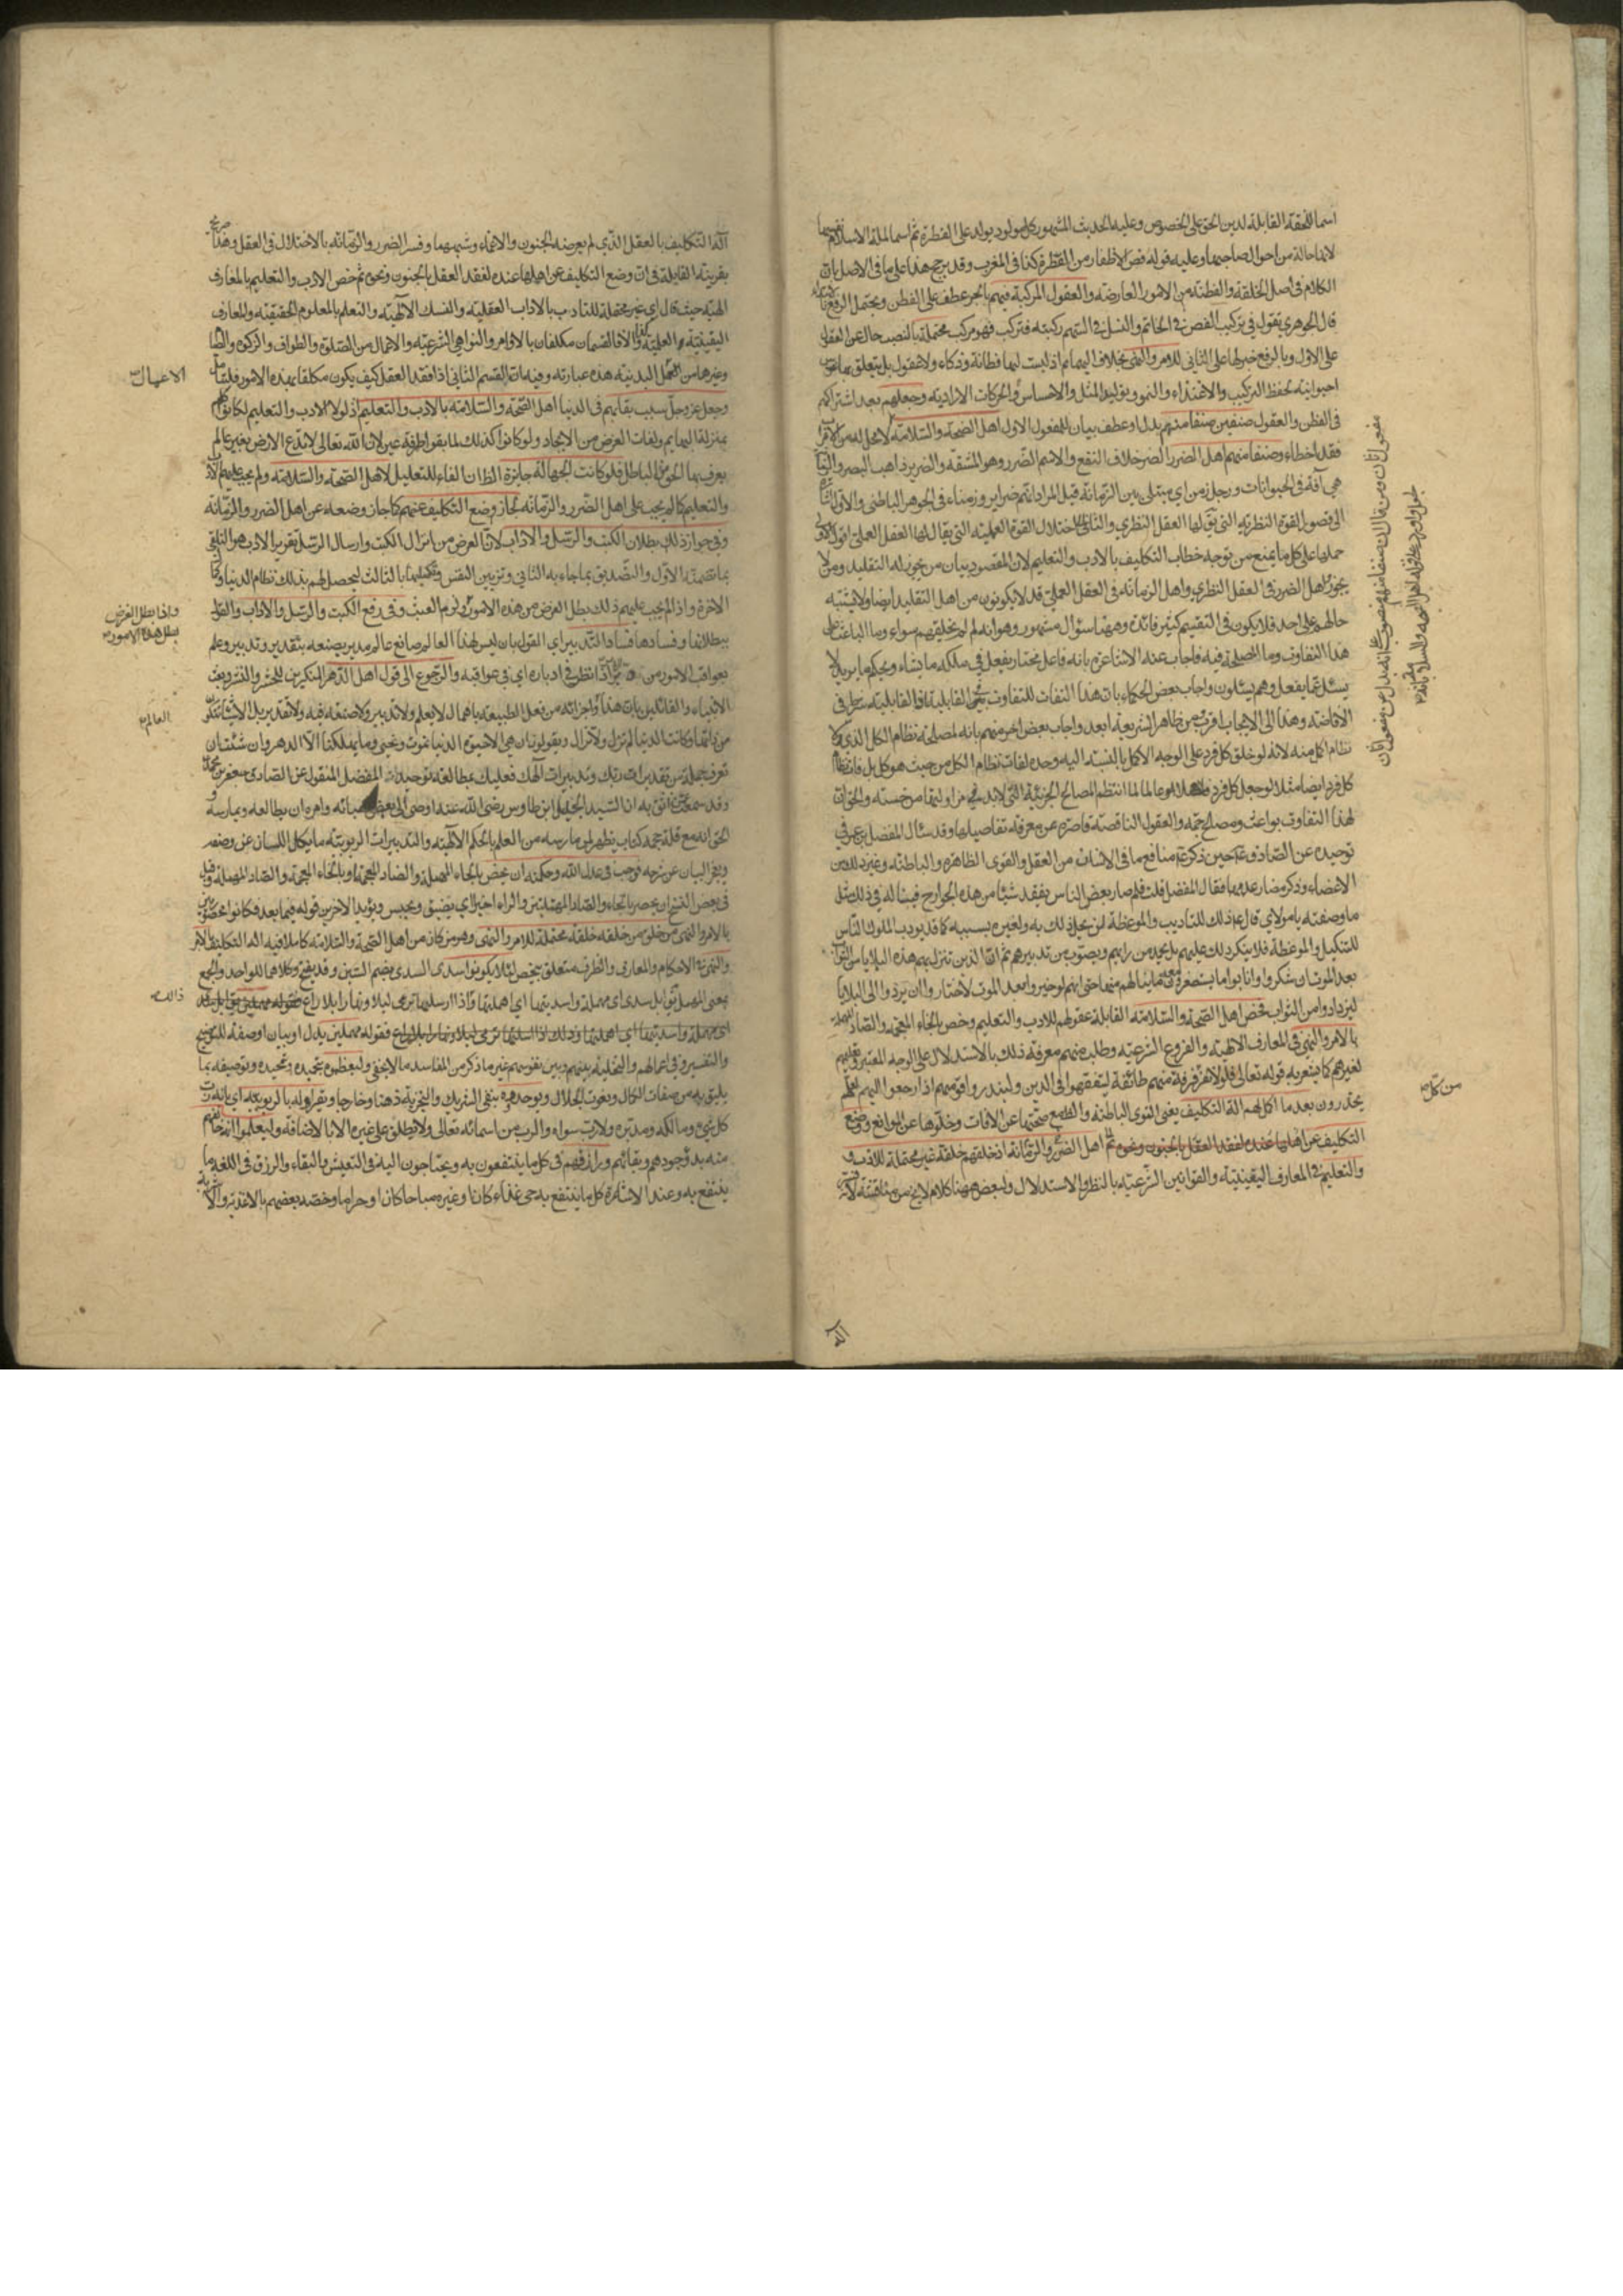 اسما للملة القابلة لدين الحق على الخصوص وعليه الحديث المشهور كل مولود يولد على الفطرة ثم اسما لملة الاسلام
لانها حالة من احوال صاحبها وعليه قوله قص الاظفار من الفطرة كذا في المغرب وقد يرجح هذا على ما في الاصل بان
الكلام في اصل الخلقة والفطنة من الامور العارضة والعقول المركبة فيهم بالجر عطف على الفطن ويحتمل الرفع
قال الجوهري يقول في تركيب الفص في الخاتم والنصل في السهم ركبته فتركب فهو مركب محتملة بالنصب حال عن العقول
على الاول وبالرفع خبر لها على الثاني للامر والنهي بخلاف البهائم اذ ليست لها فطانة وذكاء ولا عقول بل يتعلق بها نفوس
حيوانية لحفظ التركيب والاغتذاء والنمو وتوليد المثل والاحساس والحركات الارادية وجعلهم بعد اشتراكهم
في الفطن والعقول صنفين صنفا منهم بدل او عطف بيان للمفعول الاول اهل الصحة والسلامة
فقد اخطاء وصنفا منهم اهل الضرر الضر خلاف النفع والاسم الضرر وهو المشقة والضرير ذاهب البصر والزمانة
هي آفة في الحيوانات ورجل زمن اي مبتلى بين الزمانة قيل المراد انهم ضراير وزمناء في الجوهر الباطني والاول اشارة
الى قصور القوة النظرية التي يقال لها العقل النظري والثاني الى اختلال القوة العملية التي يقال لها العقل العملي اقول الاولى
حملها على كل ما يمنع من توجه خطاب التكليف بالادب والتعليم لان المقصود بيان من يجوز له التقليد ومن لا
يجوز واهل الضرر في العقل النظري واهل الزمانة في العقل العملي قد لا يكونون من اهل التقليد ايضا ولا يشتبه
حالهم على احد فلا يكون في التقسيم كثير فائدة وههنا سؤال مشهور وهو انه لم لم يخلقهم سواء وما الباعث على
هذا التفاوت وما المصلحة فيه فاجاب عنه الاشاعرة بانه فاعل مختار يفعل في ملكه ما يشاء ويحكم ما يريد لا
يسئل عما يفعل وهم يسئلون واجاب بعض الحكماء بان هذا التفاوت لتفاوت القابلية فالقابلية شرط في
الافاضة وهذا الى الايجاب اقرب ومن ظاهر الشريعة ابعد واجاب بعض اخر منهم بانه لمصلحة نظام الكل الذي لا
نظام اكمل منه لانه لو خلق كل فرد على الوجه الاكمل بالنسبة اليه وحده لفات نظام الكل من حيث هو كل بل فات نظام
كل فرد ايضا مثلا لو جعل كل فرد عالما لما انتظم المصالح الجزئية التي لابد في مزاولتها من خسته والحق ان
لهذا التفاوت بواعث ومصالح جمة والعقول الناقصة قاصرة عن معرفة تفاصيلها وقد سئال المفضل بن عمر في
توحيده عن الصادق ع حين ذكر ع منافع ما في الانسان من العقل والقوى الظاهرة والباطنة وغير ذلك من
الاعضاء وذكر مضار عدمها فقال المفضل قلت فلم صار بعض الناس يفقد شيئا من هذه الجوارح فيناله في ذلك مثل
ما وصفته يا مولاي قال ع ذلك للتاديب والموعظة لمن يحل ذلك به ولغيره بسببه كما قد يؤدب الملوك الناس
للتنكيل والموعظة فلا ينكر ذلك عليهم بل يحمد من رايهم ويصوب من تدبيرهم ثم ان الذين تنزل بهم هذه البلايا من الثواب
بعد الموت ان شكروا وانابوا ما يستصغرون معه ما ينالهم منها حتى انهم لو خيروا بعد الموت لاختاروا ان يردوا الى البلايا
ليزدادوا من الثواب فخص اهل الصحة والسلامة القابلة عقولهم للادب والتعليم وخص بالخاء المعجمة والصاد المهملة
بالامر والنهي في المعارف الالهية والفروع الشرعية وطلب منهم معرفة ذلك بالاستدلال على الوجه المعتبر وتعليمهم
لغيرهم كما يشعر به قوله تعالى فلولا نفر من كل فرقة منهم طائفة ليتفقهوا في الدين ولينذروا قومهم اذا رجعوا اليهم لعلهم
يحذرون بعد ما اكمل لهم آلة التكليف يعني القوى الباطنة والطبع صحتها عن الافات وخلوها عن الموانع ووضع
التكليف عن اهلها عنده لفقد العقل بالجنون ونحوه اهل الضرر والزمانة اذ خلقهم خلقة غير محتملة للادب
والتعليم في المعارف اليقينية والقوانين الشرعية بالنظر والاستدلال ولبعض ههنا كلام لا يخ من مناقشة لانه
مفعول ثان ومن قال ان صنفا منهم منصوب على انه بدل من مفعول ثان
من كل
آلة التكليف بالعقل الذي لم يعرضه الجنون والاغماء وشبههما وفسر الضرر والزمانة بالاختلال في العقل وهذا صريح
بقرينة المقابلة في ان وضع التكليف عن اهلها عنده لفقد العقل بالجنون ونحوه ثم خص الادب والتعليم بالمعارف
الهية حيث قال اي غير محتملة للتادب بالاداب العقلية والنسك الالهية والتعلم بالعلوم الحقيقية والمعارف
اليقينية العلمية والا فالقسمان مكلفان بالاوامر والنواهي الشرعية والاعمال من الصلوة والطواف والزكوة والصيام
وغيرها من البدنية هذه عبارته وفيه ان القسم الثاني اذا فقد العقل كيف يكون مكلفا بهذه الامور فليتأمل
وجعل عز وجل سبب بقائهم في الدنيا اهل الصحة والسلامة بالادب والتعليم اذ لولا الادب والتعليم لكانوا
بمنزلة البهايم ولفات الغرض من الايجاد ولو كانوا كذلك لما بقوا طرفة عين لان الله تعالى لا يدع الارض بغير عالم
يعرف بها الحق من الباطل فلو كانت الجهالة جايزة الظ ان الفاء للتعليل لاهل الصحة والسلامة ولم يجب عليهم الادب
والتعليم كما لم يجب على اهل الضرر والزمانة لجاز وضع التكليف عنهم كما جاز وضعه عن اهل الضرر والزمانة
وفي جواز ذلك بطلان الكتب والرسل والاداب لان الغرض من انزال الكتب وارسال الرسل تقرير الادب هو التلقي
بما تضمنه الاول والتصديق بما جاء به الثاني وتزيين النفس وتكميلها بالثالث ليحصل لهم بذلك نظام الدنيا وكمال
الاخرة واذا لم يجب عليهم ذلك بطل الغرض من هذه الامور ولزم العبث وفي رفع الكتب والرسل والاداب والقول
ببطلانها وفسادها فساد التدبير اي القول بان ليس لهذا العالم صانع عالم مدبر يصنعه بتقدير وتدبير وعلم
بعواقب الامور من اذا نظر في ادباره اي في عواقبه والرجوع الى قول اهل الدهر المنكرين للحشر والنشر وبعث
الانبياء والقائلين بان هذا واجزائه من فعل الطبيعة باهمال لا بعلم ولا تدبير ولا صنعة فيه ولا تقدير بل الاشياء تتكون
من ذاتها وكانت الدنيا لم تزل ولا تزال ويقولون ان هي الا حيوة الدنيا نموت ونحيى وما يهلكنا الا الدهر وان شئت ان
تعرف جملة من تقديرات ربك وتدبيرات آلهك فعليك بمطالعة توحيد المفضل المنقول عن الصادق جعفر بن محمد
وقد سمعت من اثق به ان السيد الجليل ابن طاوس رضي الله عنه اوصى الى بعض احبائه وامره ان يطالعه ويمارسه
الحق انه مع قلة حجمه كتاب يظهر لمن مارسه من العلم بالحكم الالهية والتدبيرات الربوبية ما يكل اللسان عن وصفه
ويعجز البيان عن شرحه فوجب في عدل الله وحكمته ان يحض بالحاء المهملة والضاد المعجمة او بالخاء المعجمة والصاد المهملة وقيل
في بعض النسخ ان يحصر بالحاء والصاد المهملتين والراء اخيرا اي يضيق ويحبس ويؤيد الاخرين قوله فيما بعد فكانوا محصورين
بالامر والنهي من خلق من خلقه خلقة محتملة للامر والنهي وهو من كان من اهل الصحة والسلامة كاملا فيه آلة التكليف بالامر
والنهي في الاحكام والمعارف والظرف متعلق بيخص لئلا يكونوا سدى السدى بضم السين وقد يفتح وكلاهما للواحد والجمع
بمعنى المهمل يقال ابل سدى اي مهملة واسديتها اي اهملتها وذلك اذا ارسلتها ترعى ليلا ونهارا بلا راع
فقوله مهملين بدل او بيان او صفة للتوضيح
والتفسير وفي اهمالهم والتخلية بينهم وبين نفوسهم غير ما ذكر من المفاسد ما لا يخفى وليعظموه بتحميده وتمجيده وتوصيفه بما
يليق به من صفات الكمال ونعوت الجلال ويوحدوه بنفي الشريك والتجزية ذهنا وخارجا ويقروا له بالربوبية اي بانه رب
كل شيء ومالكه ومدبره ولا رب سواه والرب من اسمائه تعالى ولا يطلق على غيره الا بالاضافة وليعلموا انه خالقهم
منه بدؤ وجودهم وبقائهم ورازقهم في كل ما ينتفعون به ويحتاجون اليه في التعيش والبقاء والرزق في اللغة ما
ينتفع به وعند الاشاعرة كل ما ينتفع به حي غذاء كان او غيره مباحا كان او حراما وخصه بعضهم بالاغذية والاشربة
الاعمال
واذا بطل الغرض
بطل هذه الامور
العالم
ذلك